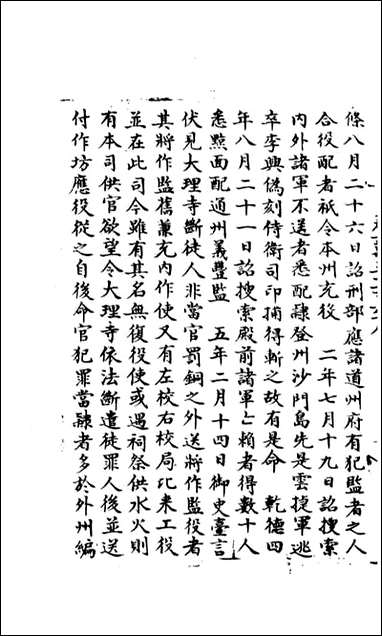 條八月二十六日詔刑部應諸道州府有犯監者之人
合役配者祇令本州充役　二年七月十九日詔搜索
内外諸軍不逞者悉配隸登州沙門島先是雲捷軍逃
卒李興僞刻侍衛司印捕得斬之故有是命　乾德四
年八月二十一日詔搜索殿前諸軍亡賴者得數十人
悉黥面配通州義豐監　五年二月十四日御史臺言
伏見大理寺斷徒人非當官罰銅之外送將作監役者
其將作監舊兼充内作使又有左校右校局比来工役
並在此司今雖有其名無復役使或遇祠祭供水火則
有本司供官欲望令大理寺依法斷遣徒罪人後並送
付作坊應役從之自後命官犯罪當隸者多於外州編